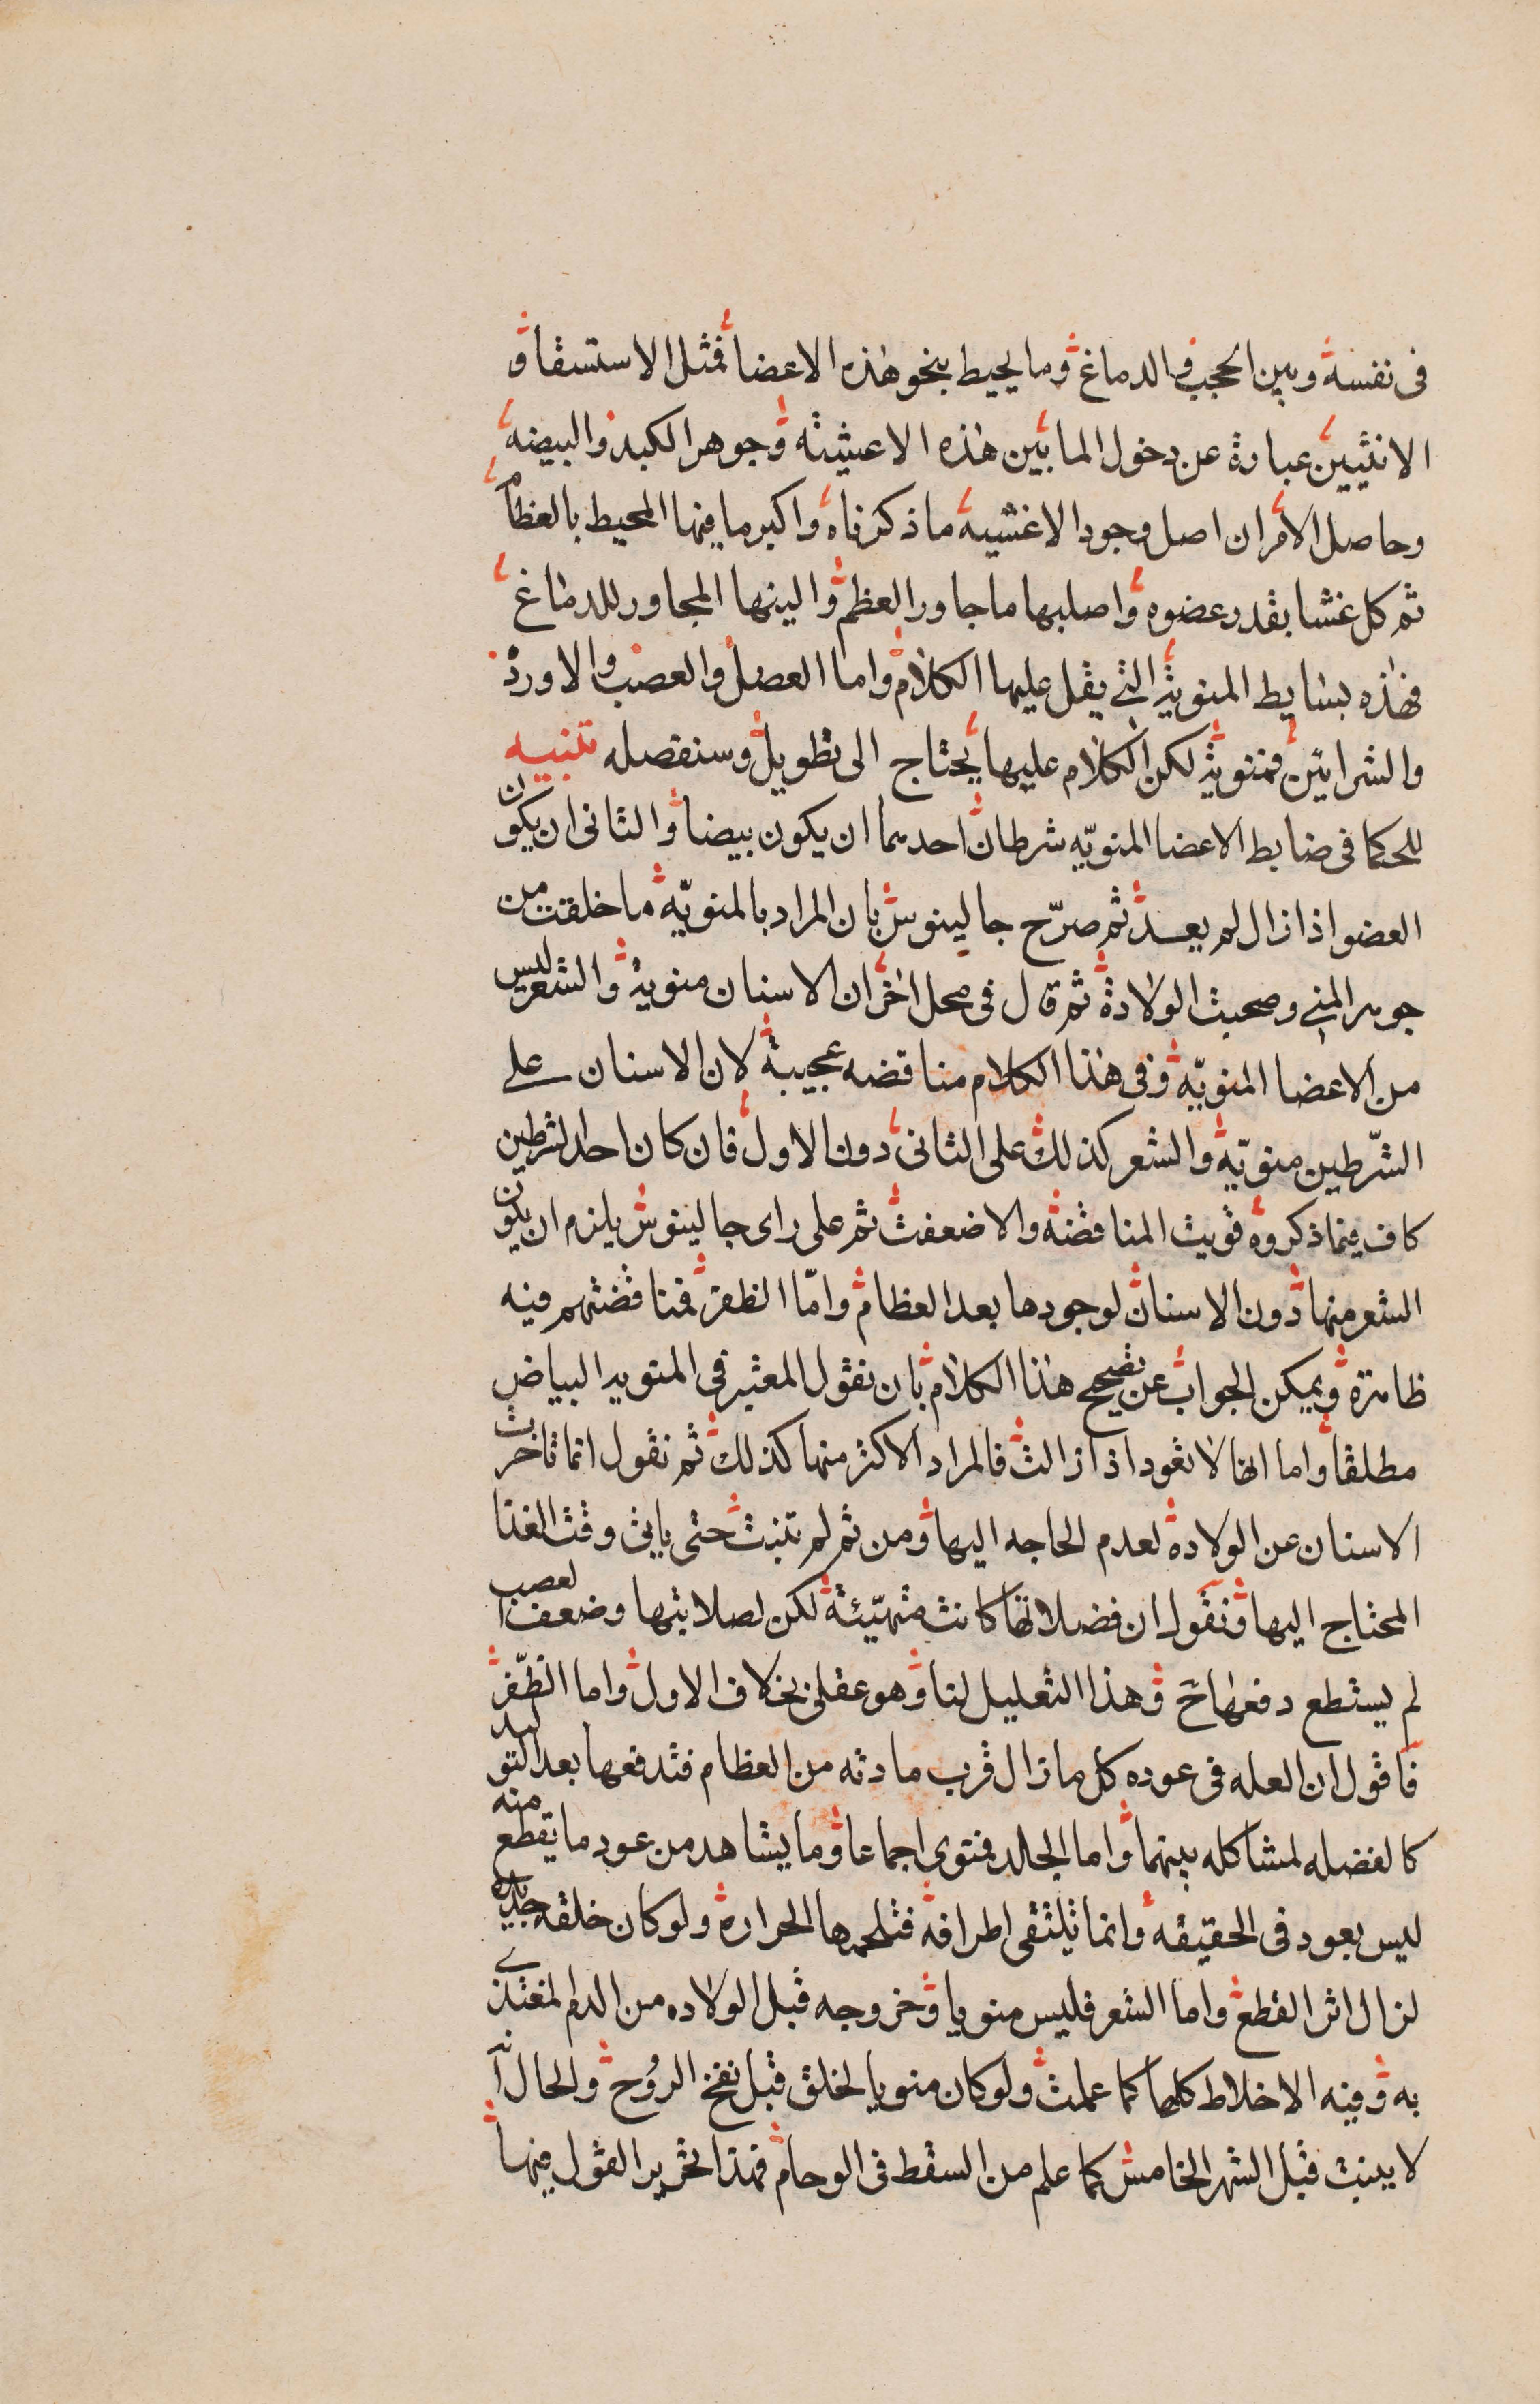 فى نفسه وبين الحجب والدماغ وما يحيط بنحو هذه الاعضا فمثل الاستسقا و
الانثيين عبارة عن دخول الما بين هذه الاغشية وجوهر الكبد والبيضه
وحاصل الامر ان اصل وجود الاغشيه ما ذكرناه واكبر ما فيها المحيط بالعظام
ثم كل غشا بقدر عضوه واصلبها ما جاور العظم والينها المجاور للدماغ
فهذه بسايط المنوية التى يقل عليها الكلام واما العضل والعصب والاوردة
والشرايين فمنوية لكن الكلام عليها يحتاج الى تطويل وسنفصله تنبيه
للحكما فى ضابط الاعضا المنويّه شرطان احدهما ان يكون بيضا والثانى ان يكون
العضو اذا زال لم يعد ثم صرّح جالينوس بان المراد بالمنويّه ما خلقت من
جوهر المنى وصحبت الولادة ثم قال فى محل اخر ان الاسنان منوية والشعر ليس
من الاعضا المنويّه وفى هذا الكلام مناقضه عجيبة لان الاسنان على
الشّرطين منويّه والشعر كذلك على الثانى دون الاول فان كان احد الشرطين
كاف فيما ذكروه قويت المناقضة والا ضعفت ثم على راى جالينوس يلزم ان يكون
الشعر منها دون الاسنان لوجودها بعد العظام وامّا الظفر فمناقضتهم فيه
ظاهرة ويمكن الجواب عن تصحيح هذا الكلام بان نقول المعتبر فى المنويه البياض
مطلقا واما انها لا تعود اذا زالت فالمراد الاكثر منها كذلك ثم نقول انما تاخرت
الاسنان عن الولادة لعدم الحاجه اليها ومن ثم لم تنبت حتى ياتى وقت الغذا
المحتاج اليها ونقول ان فضلاتها كانت متهيّئة لكن لصلابتها وضعف العصب
لم يستطع دفعها ح وهذا التعليل لنا وهو عقلى بخلاف الاول واما الظّفر
فاقول ان العله فى عوده كل ما زال قرب مادته من العظام فتدفعها بعد التوليد
كالفضله لمشاكله بينهما واما الجلد فمنوى اجماعا وما يشاهد من عود ما يقطع منه
ليس بعود فى الحقيقه وانما تلتقى اطرافه فتلحمها الحرارة ولو كان خلقه جديده
لزال اثر القطع واما الشعر فليس منويا وخروجه قبل الولاده من الدم المغتذى
به وفيه الاخلاط كلها كما علمت ولو كان منويا لخلق قبل نفخ الرُوح والحال انّ
لا ينبت قبل الشهر الخامس كما علم من السقط فى الوحام فهذا تحرير القول فيها